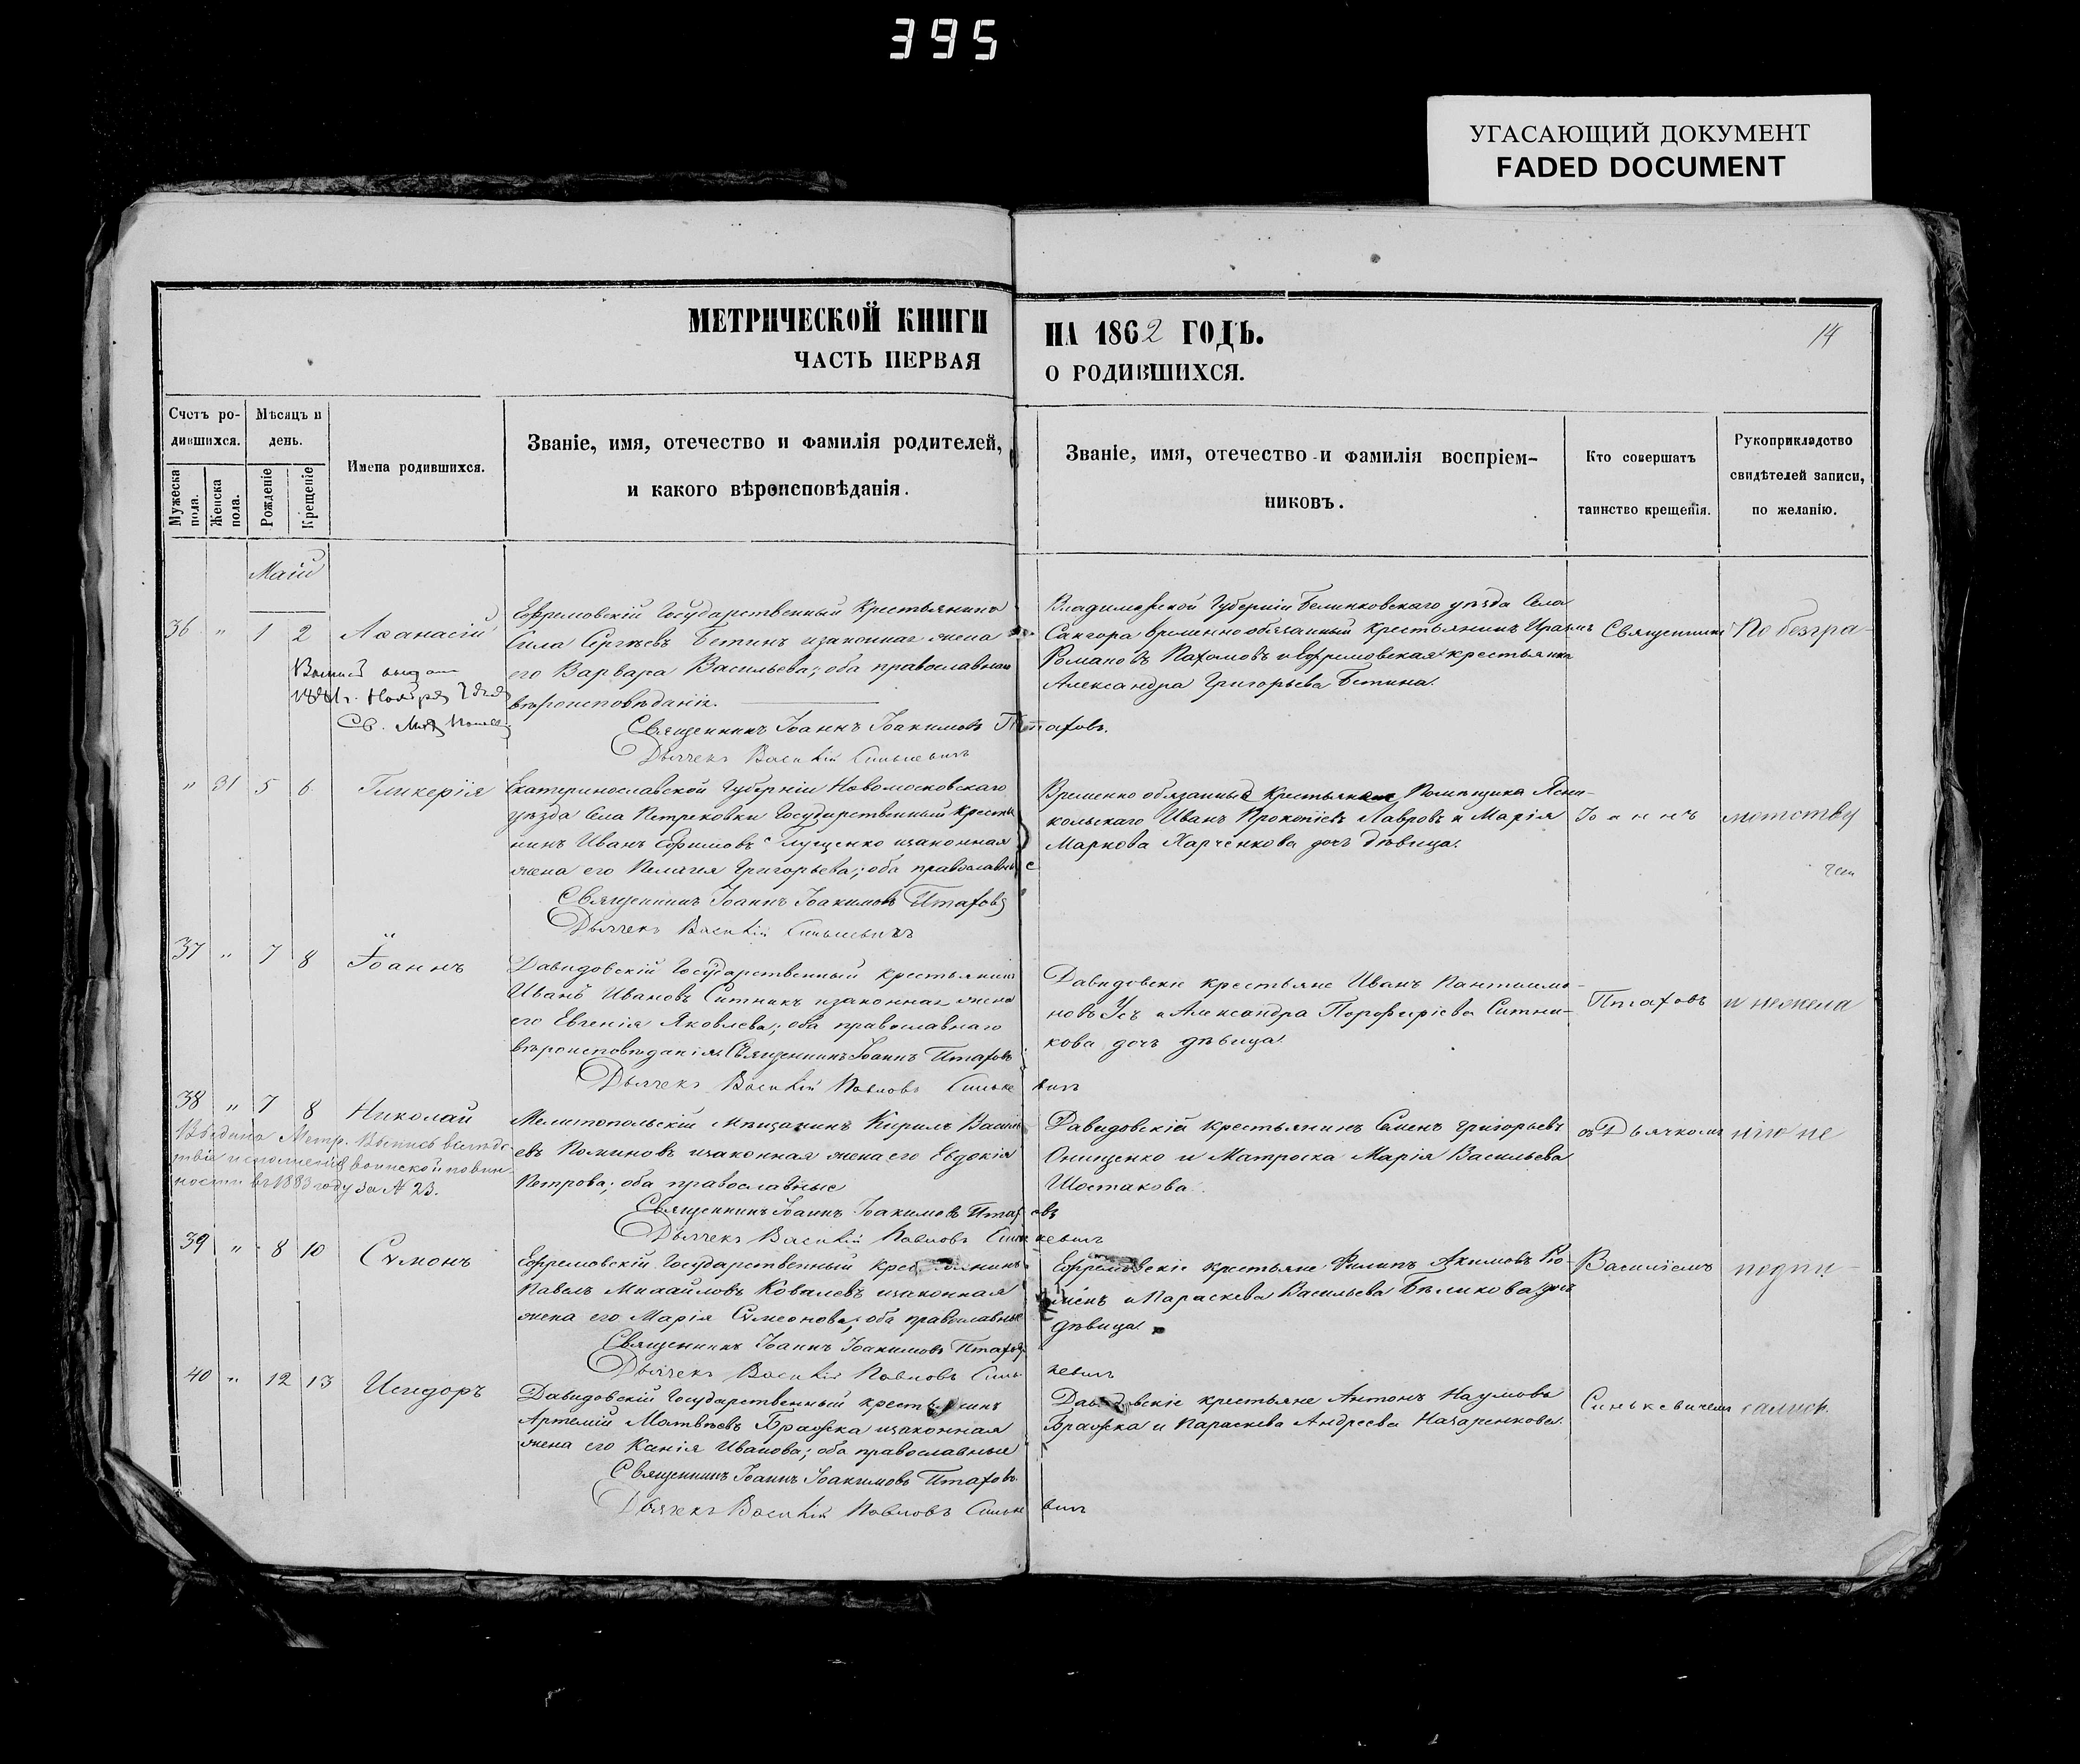 395
УГАСАЮЩИЙ ДОКУМЕНТ
FADED DOCUMENT
МЕТРИЧЕСКОЙ КНИГИ
ЧАСТЬ ПЕРВАЯ
НА 1862 ГОДЪ.
О РОДИВШИХСЯ.
14
Счетъ ро-
дившихся.
Мужеска пола.
Женска пола.
Мѣсяцъ и
день.
Рожденіе
Крещеніе
Имена родившихся.
Званіе, имя, отечество и фамилія родителей,
и какого вѣроисповѣданія.
Званіе, имя, отечество и фамилія воспріем-
никовъ.
Кто совершатъ
таинство крещенія.
Рукоприкладство
свидѣтелей записи,
по желанію.
Маій
36 " 1 2 Аѳанасій
Ефремовскій Государственный Крестьянинъ
Сила Сергѣевъ Бетинъ и законная жена
его Варвара Васильева; оба православнаго
вѣроисповѣданія.
Священникъ Іоаннъ Іоакимовъ Птаховъ.
Дьячекъ Василій Синькевичъ
Владимірской Губерніи уѣзда Села
временнообязанный крестьянинъ
Романовъ Пахомовъ и Ефремовская крестьянка
Александра Григорьева Бетина.
" 31 5 6 Гликерія
Екатеринославской Губерніи Новомосковскаго
уѣзда Села Петриковки Государственный Кресть
нинъ Иванъ Ефимовъ Глущенко и законная
жена его Пелагія Григорьева; оба православные
Священникъ Іоаннъ Іоакимовъ Птаховъ
Дьячекъ Василій Синькевичъ
Временно обязанные Крестьяне Помѣщика
Иванъ Прокопіевъ Лавровъ и Марія
Маркова Харченкова дочь дѣвица.
37 " 7 8 Іоаннъ
Давидовскій Государственный крестьянинъ
Иванъ Ивановъ Ситникъ и законная жена
его Евгенія Яковлева; оба православнаго
вѣроисповѣданія Священникъ Іоаннъ Птаховъ
Дьячекъ Василій Павловъ Синькевичъ
Давидовскіе крестьяне Иванъ Пантилимо-
новъ Усъ и Александра Порофиріева Ситни-
кова дочь дѣвица.
38 " 7 8 Николай
Выдана Метр. Выпись вслѣдс
твіе исполненія воинской повин-
ности въ 1883 году за № 23.
Мелитопольскій мѣщанинъ Кирилъ Васильевъ
Поминовъ и законная жена его Евдокія
Петрова; оба православные
Священникъ Іоаннъ Іоакимовъ Птаховъ
Дьячекъ Василій Павловъ Синькевичъ
Давидовскій крестьянинъ Семенъ Григорьевъ
Онищенко и Матроска Марія Васильева
Шостакова.
39 " 8 10 Сѵмонъ
Ефремовскій Государственный крестьянинъ
Павелъ Михайловъ Ковалевъ и законная
жена его Марія Сѵмеонова; оба православные
Священникъ Іоаннъ Іоакимовъ Птаховъ
Дьячекъ Василій Павловъ Синькевичъ
Ефремовскіе крестьяне Филипъ Акимовъ
и Параскева Васильева Бѣликова дочь
дѣвица.
40 " 12 13 Исидоръ
Давидовскій Государственный крестьянинъ
Артемій Матвѣевъ Бражка и законная
жена его Ксенія Иванова; оба православные
Священникъ Іоаннъ Іоакимовъ Птаховъ
Дьячекъ Василій Павловъ Синькевичъ
Давидовскіе крестьяне Антонъ Наумовъ
Бражка и Параскева Андреева Назаренкова.
Священникъ
Іоаннъ
Птаховъ
съ Дьячкомъ
Василіемъ
Синькевичемъ
По безгра-
мотству
и нежела
нію не
подпи-